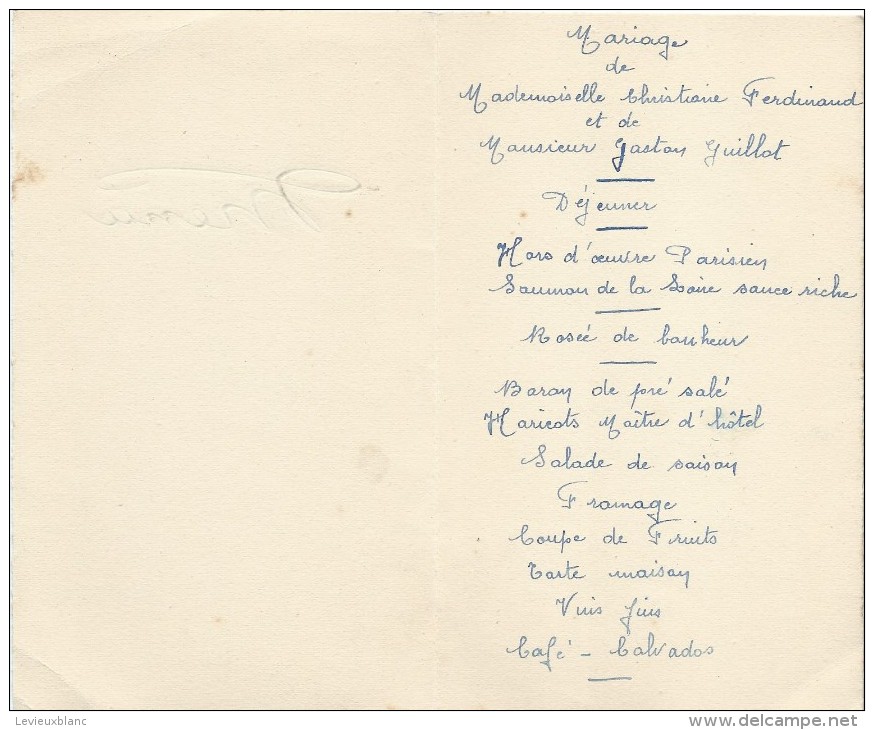 Mariage
de
Mademoiselle Christiane Ferdinand
et de
Monsieur Gaston Guillot
Déjeuner
Hors d'œuvre Parisien
Saumon de la Loire sauce riche
Rosée de bonheur
Baron de pré salé
Haricots Maître d'hôtel
Salade de saison
Fromage
Coupe de Fruits
Tarte maison
Vins fins
Café - Calvados
Menu
Levieuxblanc
delcampe.net